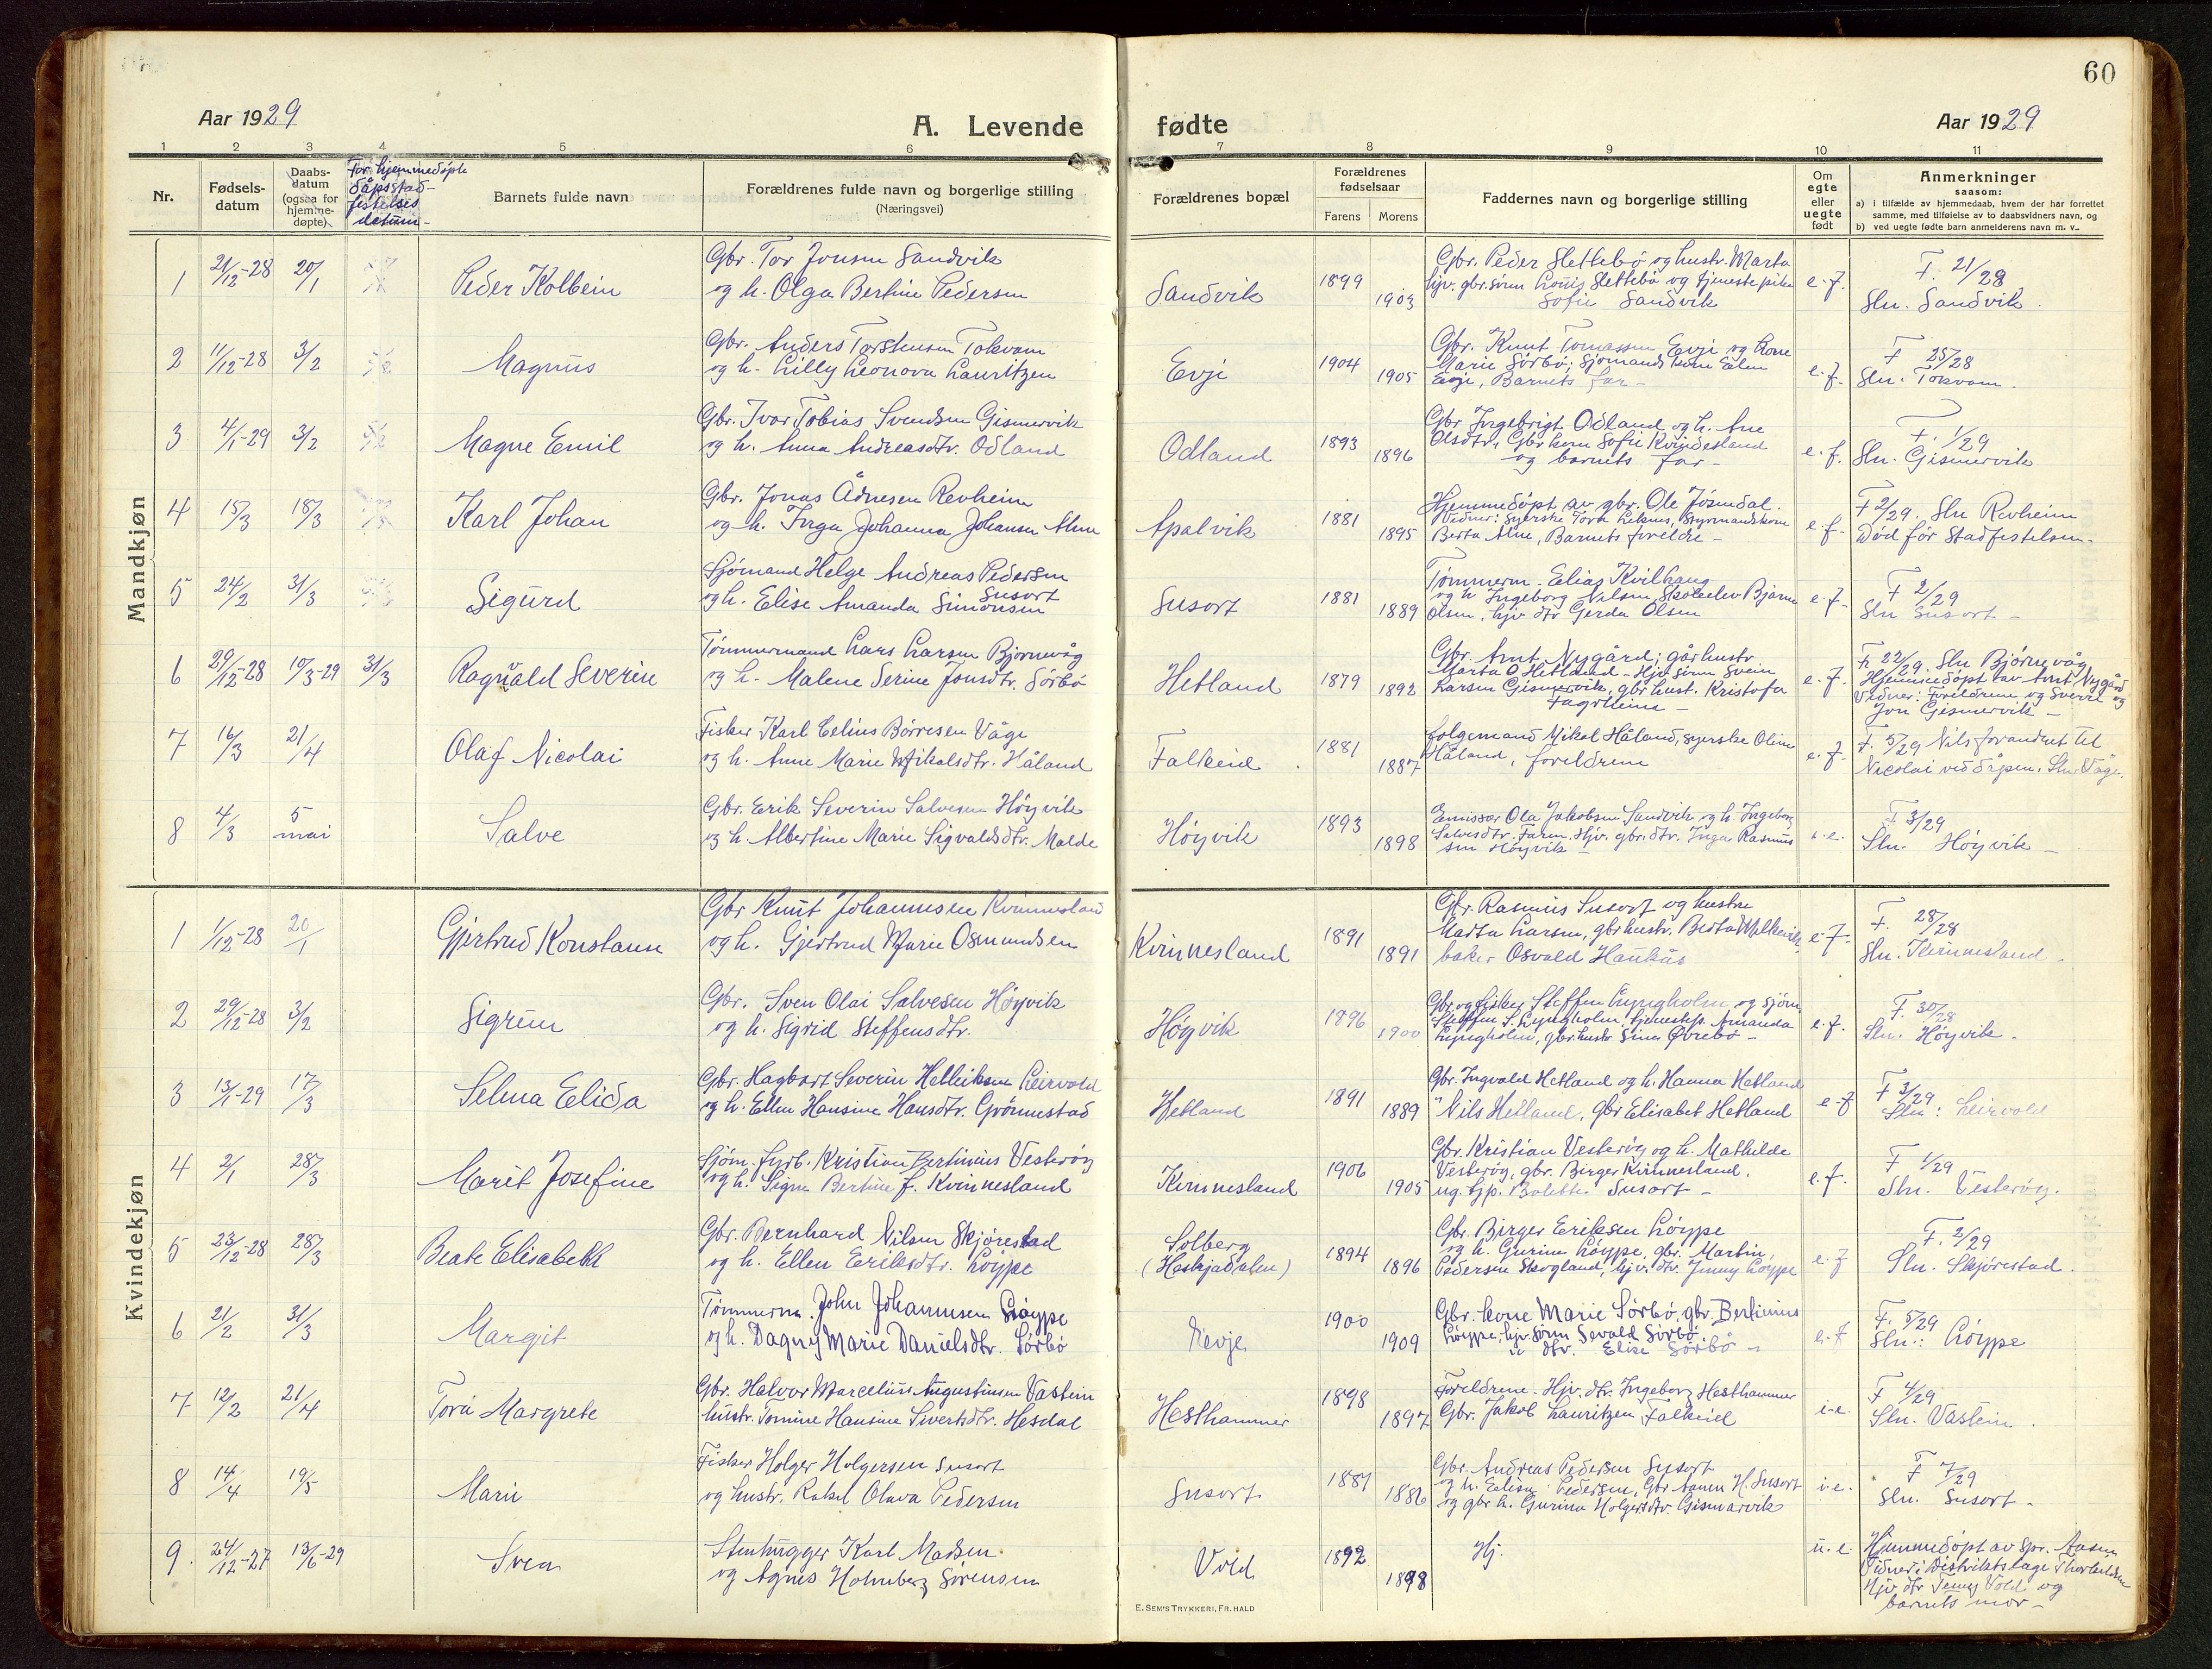 60
Aar 1929
A. Levende
fødte
Aar 1929
1 2 3 4 5 6 7 8 9 10 11
Nr.
Fødsels-
datum
Daabs-
datum
(ogsaa for
hjemme-
døpte)
For hjemmedöpte
dåpsstad-
festelses
datum-
Barnets fulde navn
Forældrenes fulde navn og borgerlige stilling
(Næringsvei)
Forældrenes bopæl
Forældrenes
fødselsaar
Farens Morens
Faddernes navn og borgerlige stilling
Om
egte
eller
uegte
født
Anmerkninger
saasom:
a) i tilfælde av hjemmedaab, hvem der har forrettet
samme, med tilføielse av to daabsvidners navn, og
b) ved uegte fødte barn anmelderens navn m. v..
Mandkjøn
1 21/12-28 20/1 Peder Kolbein
Gbr. Tor Jonsen Sandvik
og h. Olga Bertine Pedersen
Sandvik 1899 1903
Gbr. Peder Slettebö og hustr. Marta
hjv. gbr. sönn Louis Slettebö og tjenestepike
Sofie Sandvik
e. f.
F. 21/28
Sln. Sandvik.
2 11/12-28 3/2 Magnus
Gbr. Anders Torstensen Tokvam
og h. Lilly Leonova Lauritzen
Evje 1904 1905
Gbr. Knut Tomassen Evje og kone
Marie Sörbö, Sjömands kone Elen
Evje, Barnets far-
e. f.
F 25/28
Sln. Tokvam.
3 4/1-29 3/2 Magne Emil
Gbr. Ivar Tobias Svendsen Gismervik
og h. Anna Andreasdtr. Odland
Odland 1893 1896
Gbr Ingebrigt Odland og h. Ane
Olsdtr, Gbr kone Sofie Kvindesland
og barnets far-
e. f.
F. 1/29
Sln. Gismervik
4 15/3 18/3 Karl Johan
Gbr. Jonas Ådnesen Revheim
og h. Inga Johanna Johansen Alne
Apalvik 1881 1895
Hjemmedöpt av gbr. Ole Jösendal.
Vidner: Syerske Tora Leknes, Styrmandskone
Berta Alne, Barnets foreldre-
e. f.
F 2/29. Sln Revheim
Död för Stadfestelsen-
5 24/2 31/3 Sigurd
Sjömand Helge Andreas Pedersen
Susort
og h. Elise Amanda Simonsen
Susort 1881 1889
Tömmerm. Elias Kvilhaug
og h Ingeborg Nilsen, Skoleelev Bjarne
Olsen, hjv dtr Gerda Olsen
e. f.
F 2/29
Sln Susort-
6 29/12-28 10/3-29 31/3 Ragnvald Severin
Tömmermand Lars Larsen Bjornevåg
og h. Malene Serine Jonsdtr. Sörbö
Hetland 1879 1892
Gbr. Amt Nygård; gårhustr
Marta O Hetland- Hjv sönn Svein
Larsen Gismervik, gbr hust. Kristofa
Fagerheim-
e. f.
F. 22/29. Sln Bjørnevåg
Hjemmedöpt av Amt Nygård
Vidner: Foreldrene og Sverre og
Jon Gismervik-
7 16/3 21/4 Olaf Nicolai
Fisker Karl Celius Börresen Våge
og h. Anne Marie Mikalsdtr. Håland
Falkeid 1881 1887
Folgemand Mikal Håland, syerske Oline
Håland, foreldrene
e. f.
F. 5/29 Nils forandret til
Nicolai ved dåpen, Sln. Våge.
8 4/3 5 mai Salve
Gbr. Erik Severin Salvesen Höyvik
og h. Albertine Marie Sigvaldsdtr. Malde
Höyvik 1893 1898
Emissær Ola Jakobsen Sandvik og h. Ingeborg
Salvesdtr. Faren, Hjv. gbr. dtr. Inga Rasmus
sen Höyvik-
i. e.
F 3/29
Sln. Höyvik-
Kvindekjøn
1 1/12-28 20/1 Gjertrud Konstanse
Gbr Knut Johannesen Kvinnesland
og h. Gjertrud Marie Osmundsen
Kvinnesland 1891 1891
Gbr. Rasmus Susort og hustru
Marta Larsen, gbr hustr. Berta Melkevik,
baker Osvald Haukås
e. f.
F. 28/28
Sln. Kvinnesland-
2 29/12-28 3/2 Sigrun
Gbr. Sven Olai Salvesen Höyvik
og h. Sigrid Steffensdtr.
Höyvik 1896 1900
Gbr. og fisker Steffen Lyngholm og sjöm.
Steffen S. Lyngholm, tjenestep. Amanda
Lyngholm, gbr. hustr Sine Øvrebø-
e. f.
F. 30/28
Sln. Höyvik.
3 13/1-29 17/3 Selma Elida
Gbr. Hagbart Severin Helliksen Leirvold
og h. Ellen Hansine Hansdtr. Grönnestad
Hetland 1891 1889
Gbr. Ingvald Hetland og h. Hanna Hetland
" Nils Hetland, Gbr Elisabet Hetland
e. f
F 3/29
Sln: Leirvold
4 2/1 28/3 Marit Josefine
Sjöm. fyrb. Kristian Bertinius Vesteröy
og h. Signe Bertine f. Kvinnesland
Kvinnesland 1906 1905
Gbr. Kristian Vesteröy og h. Mathilde
Vesteröy, gbr. Birger Kvinnesland.
ug. tjp. Bolette Susort-
e. f.
F 1/29
Sln. Vesteröy.
5 23/12-28 28/3 Beate Elisabeth
Gbr. Bernhard Nilsen Skjørestad
og h. Ellen Eriksdtr. Löype
Solberg
(Heskjadalen) 1894 1896
Gbr. Birger Eriksen Löype
og h. Gurine Löype, gbr. Martin,
Pedersen Skogland, hjv. dtr. Jenny Löype
e. f
F. 2/29
Sln. Skjörestad.
6 21/2 31/3 Margit
Tömmerm. John Johannesen Löype
og h. Dagny Marie Danielsdtr. Sörbö
Nevje 1900 1909
Gbr. kone Marie Sörbö, gbr. Bertinius
Löype, hjv. sönn Sevald Sörbö.
" dtr. Elise Sörbö-
e. f
F. 5/29
Sln.: Löype
7 12/2 21/4 Tora Margrete
Gbr. Halvor Marcelius Augustinsen Vastein
hustr. Tomine Hansine Sivertsdtr. Hesdal
Hesthammer 1898 1897
Foreldrene. Hjv. dtr. Ingeborg Hesthammer
Gbr. Jakob Lauritzen Falkeid
i-e.
F 4/29
Sln. Vastein.
8 14/4 19/5 Marie
Fisker Holger Holgersen Susort
og hustr. Rakel Olava Pedersen
Susort 1887 1886
Gbr. Andreas Pedersen Susort
og h. Eelise Pedersen, Gbr. Aanen H. Susort
og gbr h. Gurine Holgersdtr. Gismarvik
i-e.
F 7/29
Sln. Susort-
9. 24/12-27 13/6-29 Sven
Stenhugger Karl Madsen
og Agnes Holmberg Sörensen
Vold 1892 1898
Hj.
u. e.
Hjemmedöpt av Spr. Aasen
Vidner: Distriktslæge Thorkildsen
Hjv. dtr Jenny Vold og
barnets mor-
E. SEM'S TRYKKERI, FR. HALD